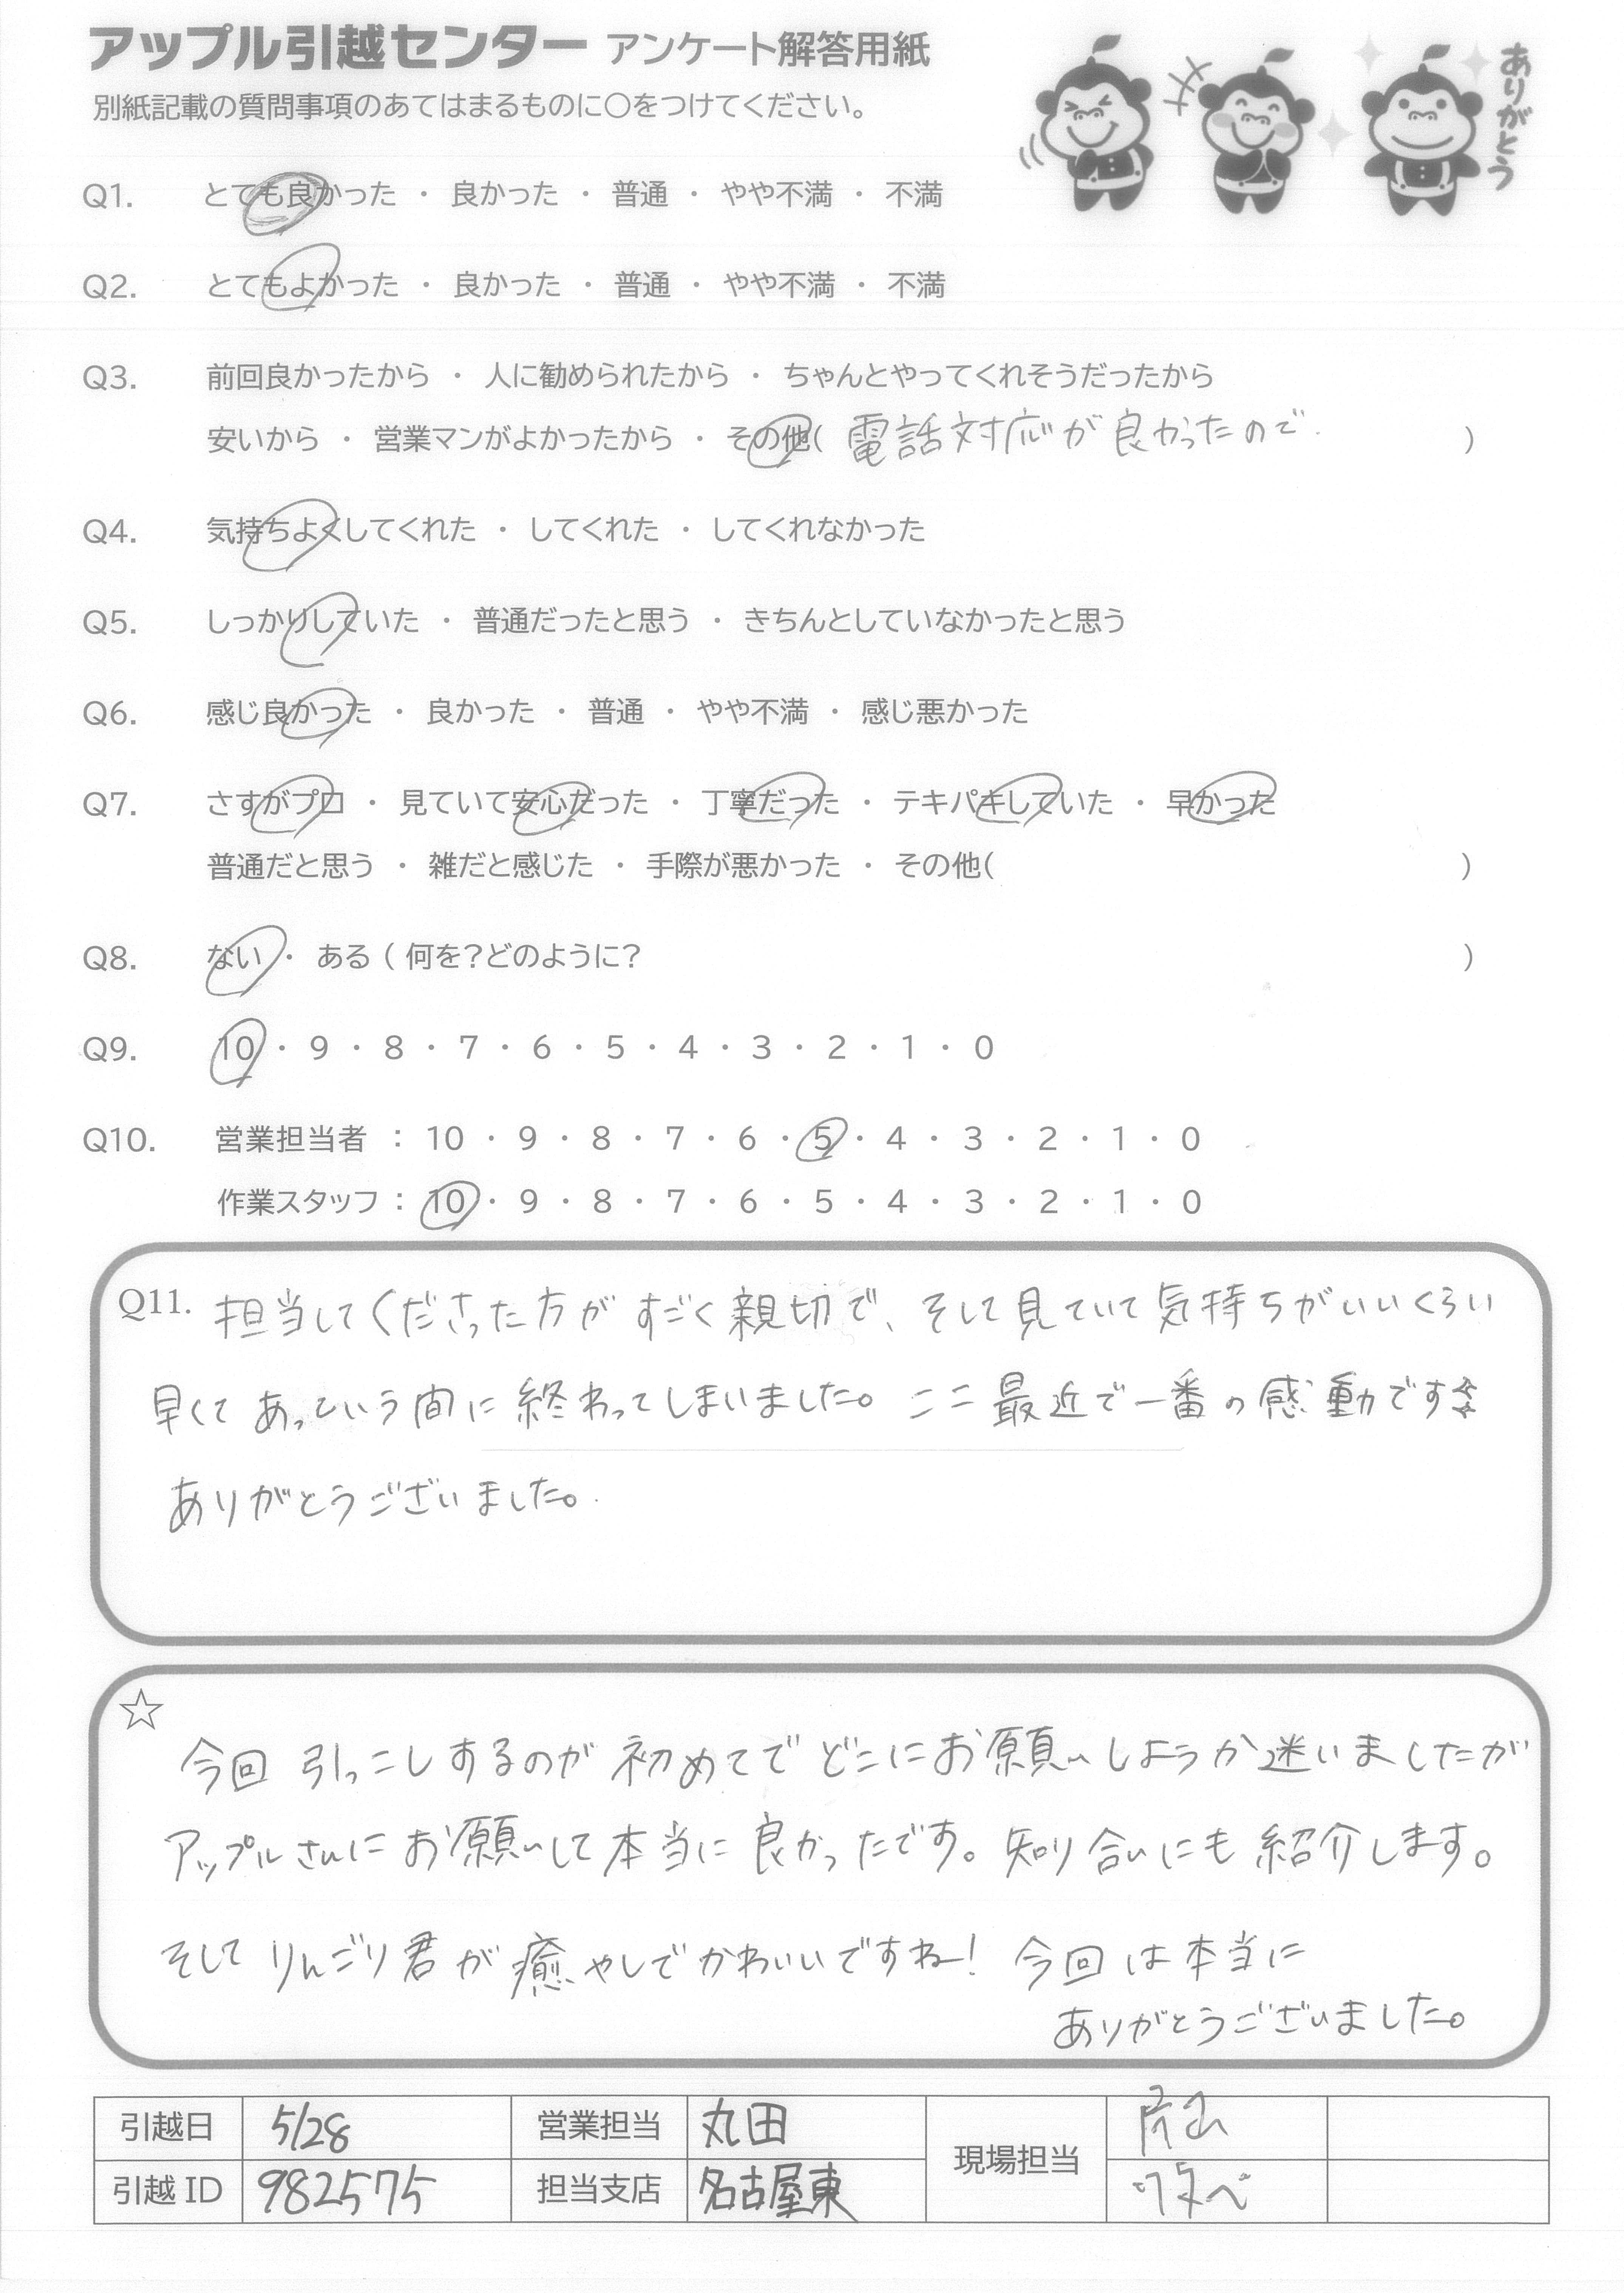 アップル引越センター アンケート解答用紙
別紙記載の質問事項のあてはまるものに〇をつけてください。
ありがとう
Q1. とても良かった ・ 良かった ・ 普通 ・ やや不満 ・ 不満
Q2. とてもよかった ・ 良かった ・ 普通 ・ やや不満 ・ 不満
Q3. 前回良かったから ・ 人に勧められたから ・ ちゃんとやってくれそうだったから
安いから ・ 営業マンがよかったから ・ その他( 電話対応が良かったので )
Q4. 気持ちよくしてくれた ・ してくれた ・ してくれなかった
Q5. しっかりしていた ・ 普通だったと思う ・ きちんとしていなかったと思う
Q6. 感じ良かった ・ 良かった ・ 普通 ・ やや不満 ・ 感じ悪かった
Q7. さすがプロ ・ 見ていて安心だった ・ 丁寧だった ・ テキパキしていた ・ 早かった
普通だと思う ・ 雑だと感じた ・ 手際が悪かった ・ その他( )
Q8. ない ・ ある ( 何を?どのように? )
Q9. 10 ・ 9 ・ 8 ・ 7 ・ 6 ・ 5 ・ 4 ・ 3 ・ 2 ・ 1 ・ 0
Q10. 営業担当者 : 10 ・ 9 ・ 8 ・ 7 ・ 6 ・ 5 ・ 4 ・ 3 ・ 2 ・ 1 ・ 0
作業スタッフ : 10 ・ 9 ・ 8 ・ 7 ・ 6 ・ 5 ・ 4 ・ 3 ・ 2 ・ 1 ・ 0
Q11. 担当してくださった方がすごく親切で、そして見ていて気持ちがいいくらい
早くてあっという間に終わってしまいました。ここ最近で一番の感動です☆
ありがとうございました。
☆
今回引っこしするのが初めてでどこにお願いしようか迷いましたが
アップルさんにお願いして本当に良かったです。知り合いにも紹介します。
そしてりんごり君が癒やしでかわいいですね! 今回は本当に
ありがとうございました。
引越日 5/28 営業担当 丸田 現場担当 片山
引越ID 982575 担当支店 名古屋東